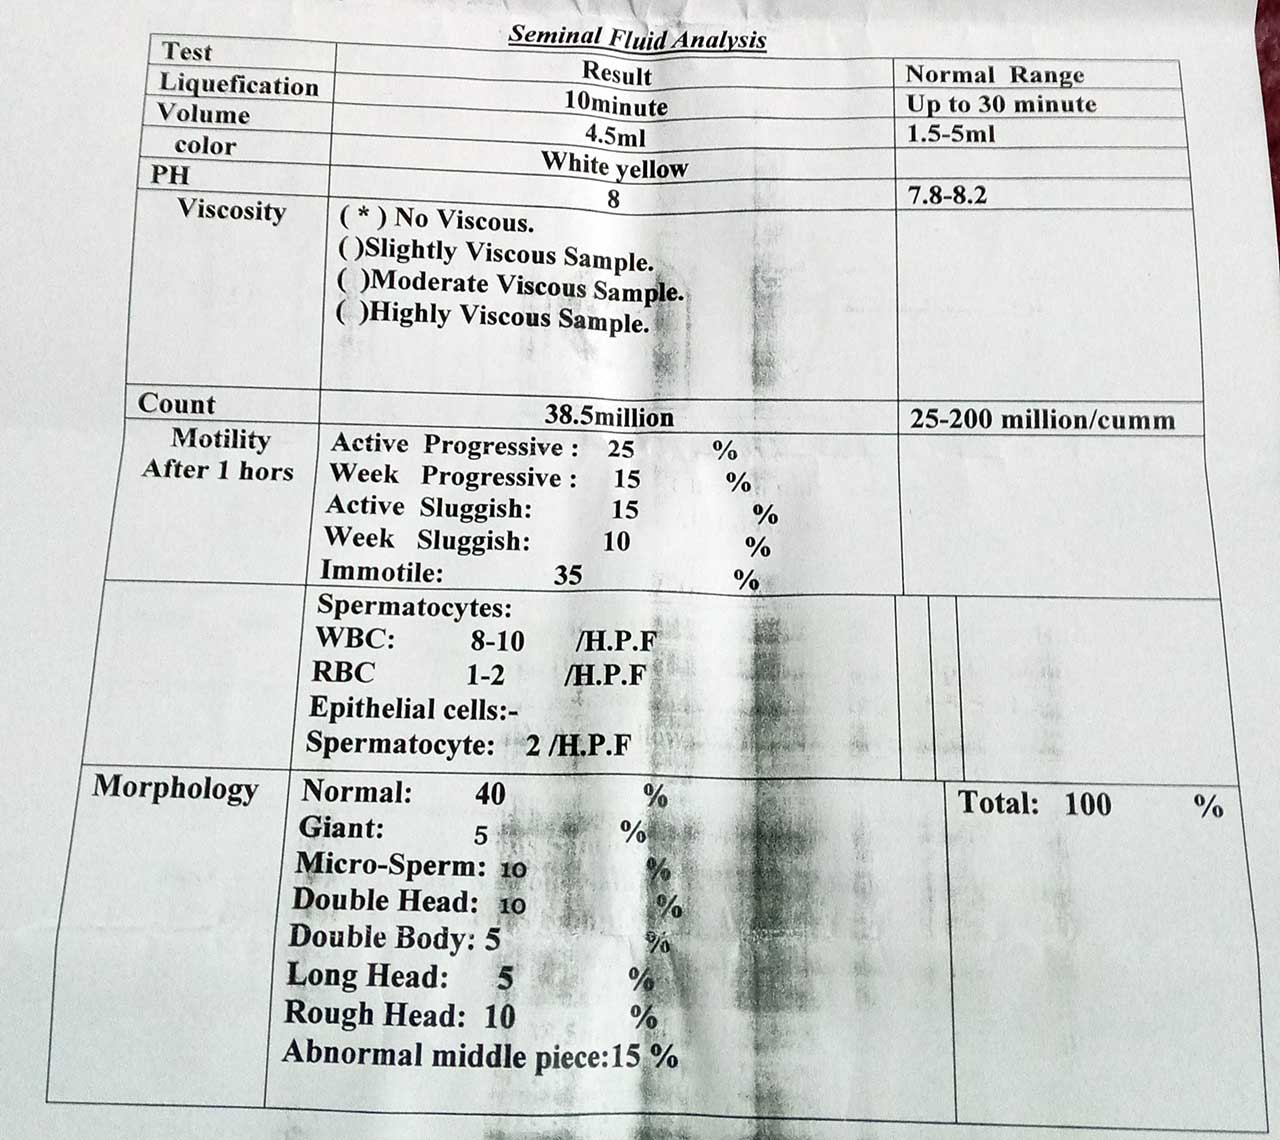 Seminal Fluid Analysis
Test Result Normal Range
Liquefication 10minute Up to 30 minute
Volume 4.5ml 1.5-5ml
color White yellow
PH 8 7.8-8.2
Viscosity ( * ) No Viscous.
( )Slightly Viscous Sample.
( )Moderate Viscous Sample.
( )Highly Viscous Sample.
Count 38.5million 25-200 million/cumm
Motility Active Progressive : 25 %
After 1 hors Week Progressive : 15 %
Active Sluggish: 15 %
Week Sluggish: 10 %
Immotile: 35 %
Spermatocytes:
WBC: 8-10 /H.P.F
RBC 1-2 /H.P.F
Epithelial cells:-
Spermatocyte: 2 /H.P.F
Morphology Normal: 40 % Total: 100 %
Giant: 5 %
Micro-Sperm: 10 %
Double Head: 10 %
Double Body: 5 %
Long Head: 5 %
Rough Head: 10 %
Abnormal middle piece:15 %